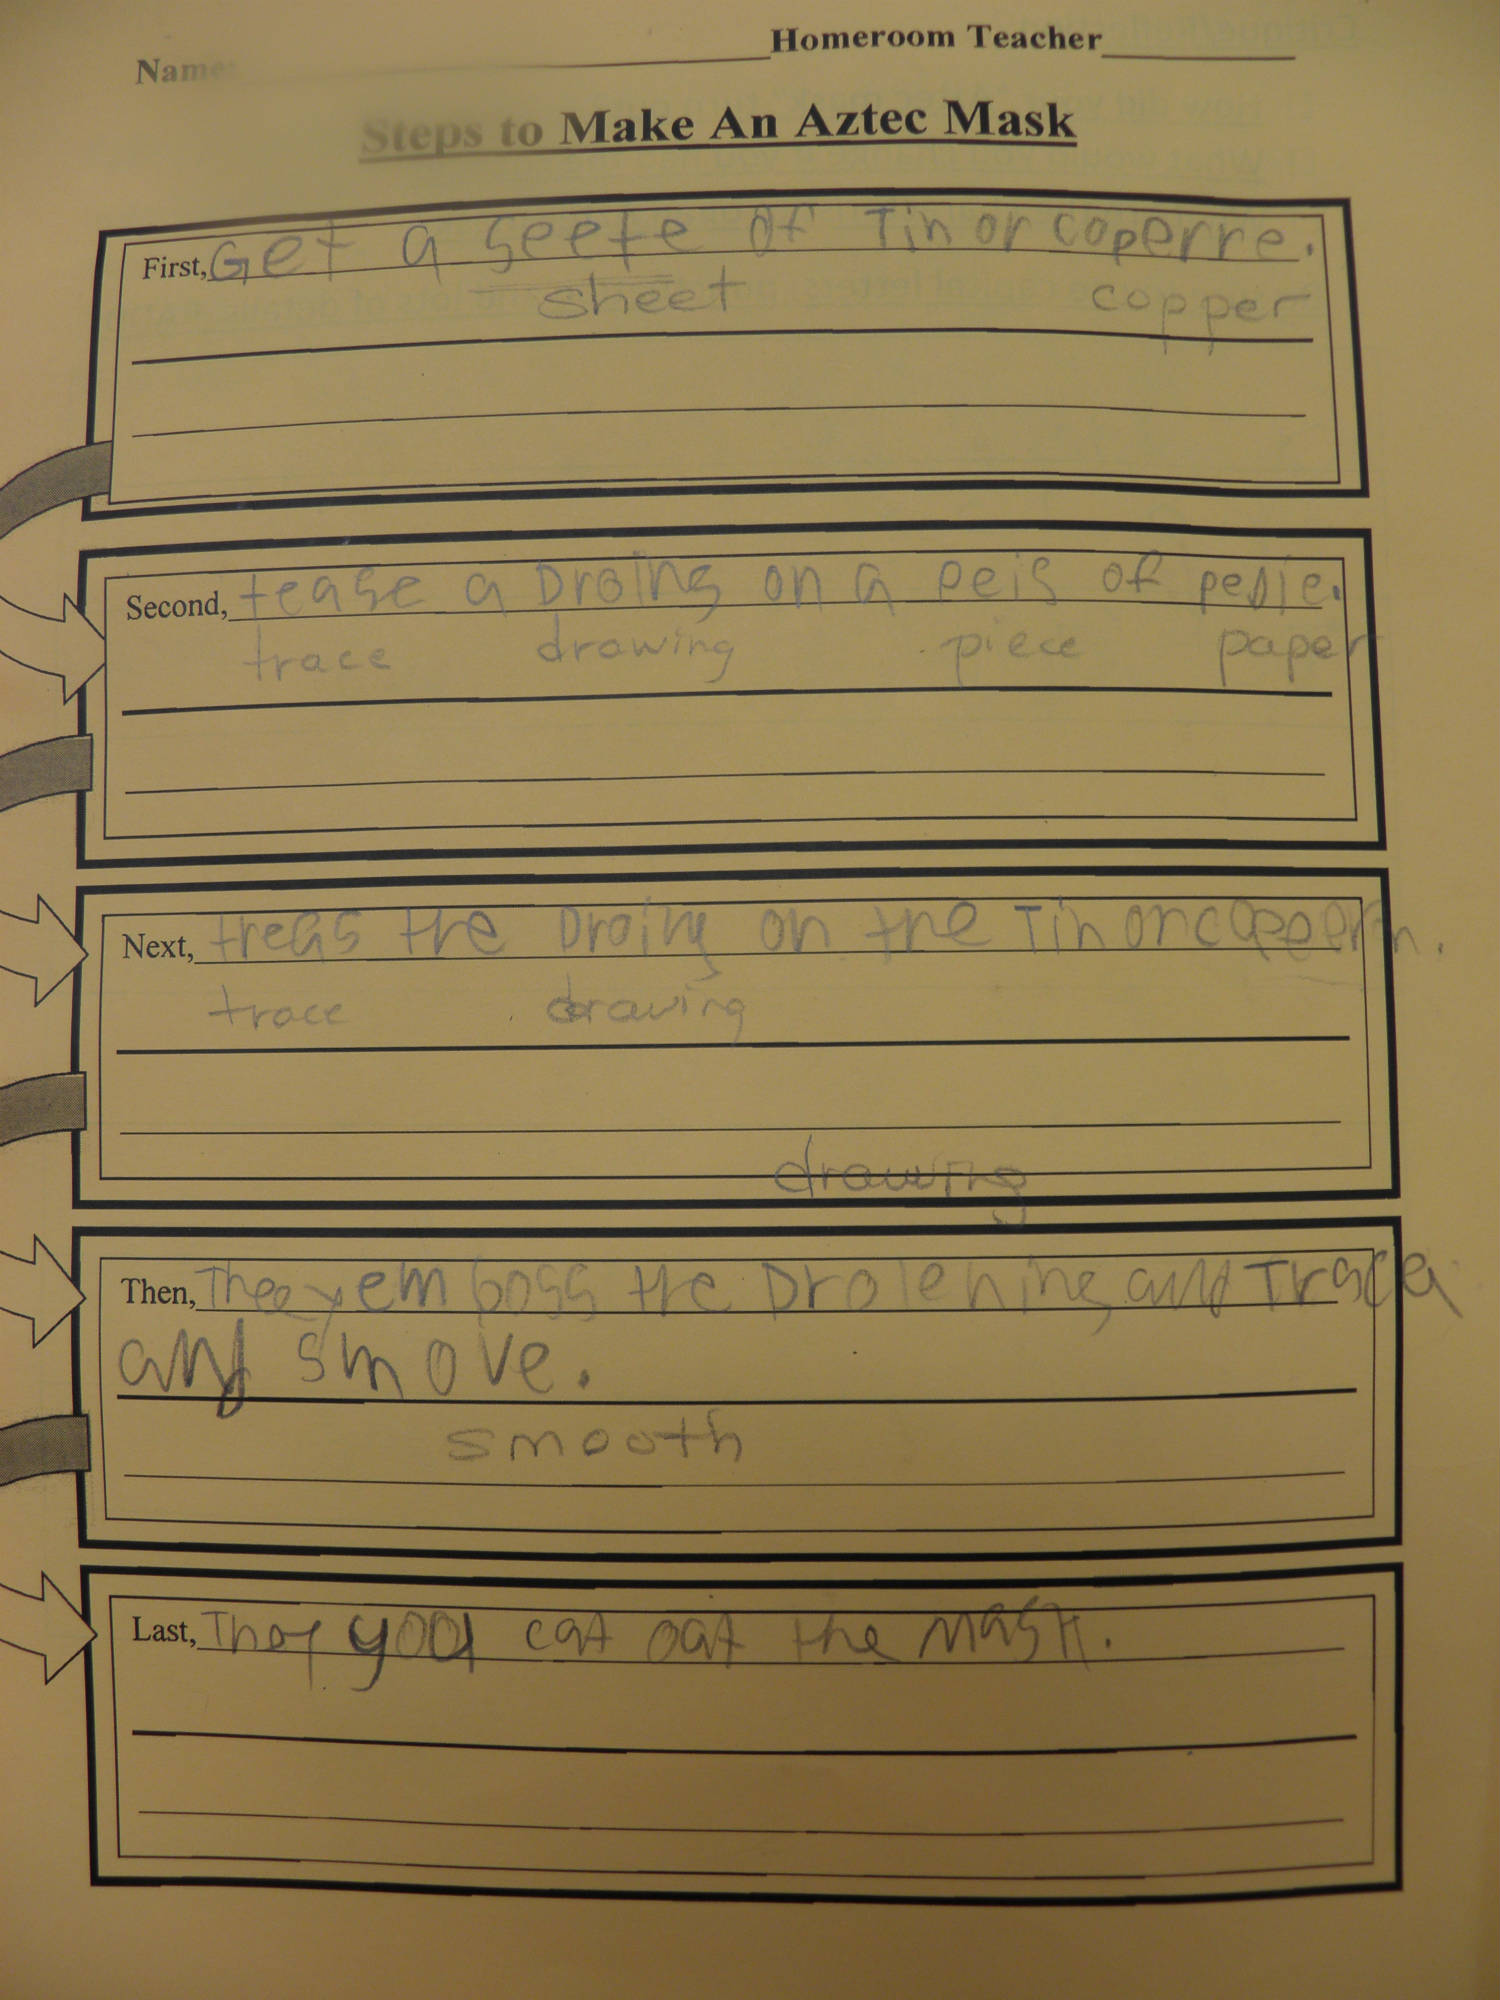 Name: Homeroom Teacher
Steps to Make An Aztec Mask
First, Get a seete of Tin or coperre.
sheet copper
Second, tease a Droing on a peis of
trace drawing piece paper
Next, treas the Droing on the Tin or
trace drawing
drawing
Then, They emboss the and Trace
and smove.
smooth
Last, They you cat oat the Mask.